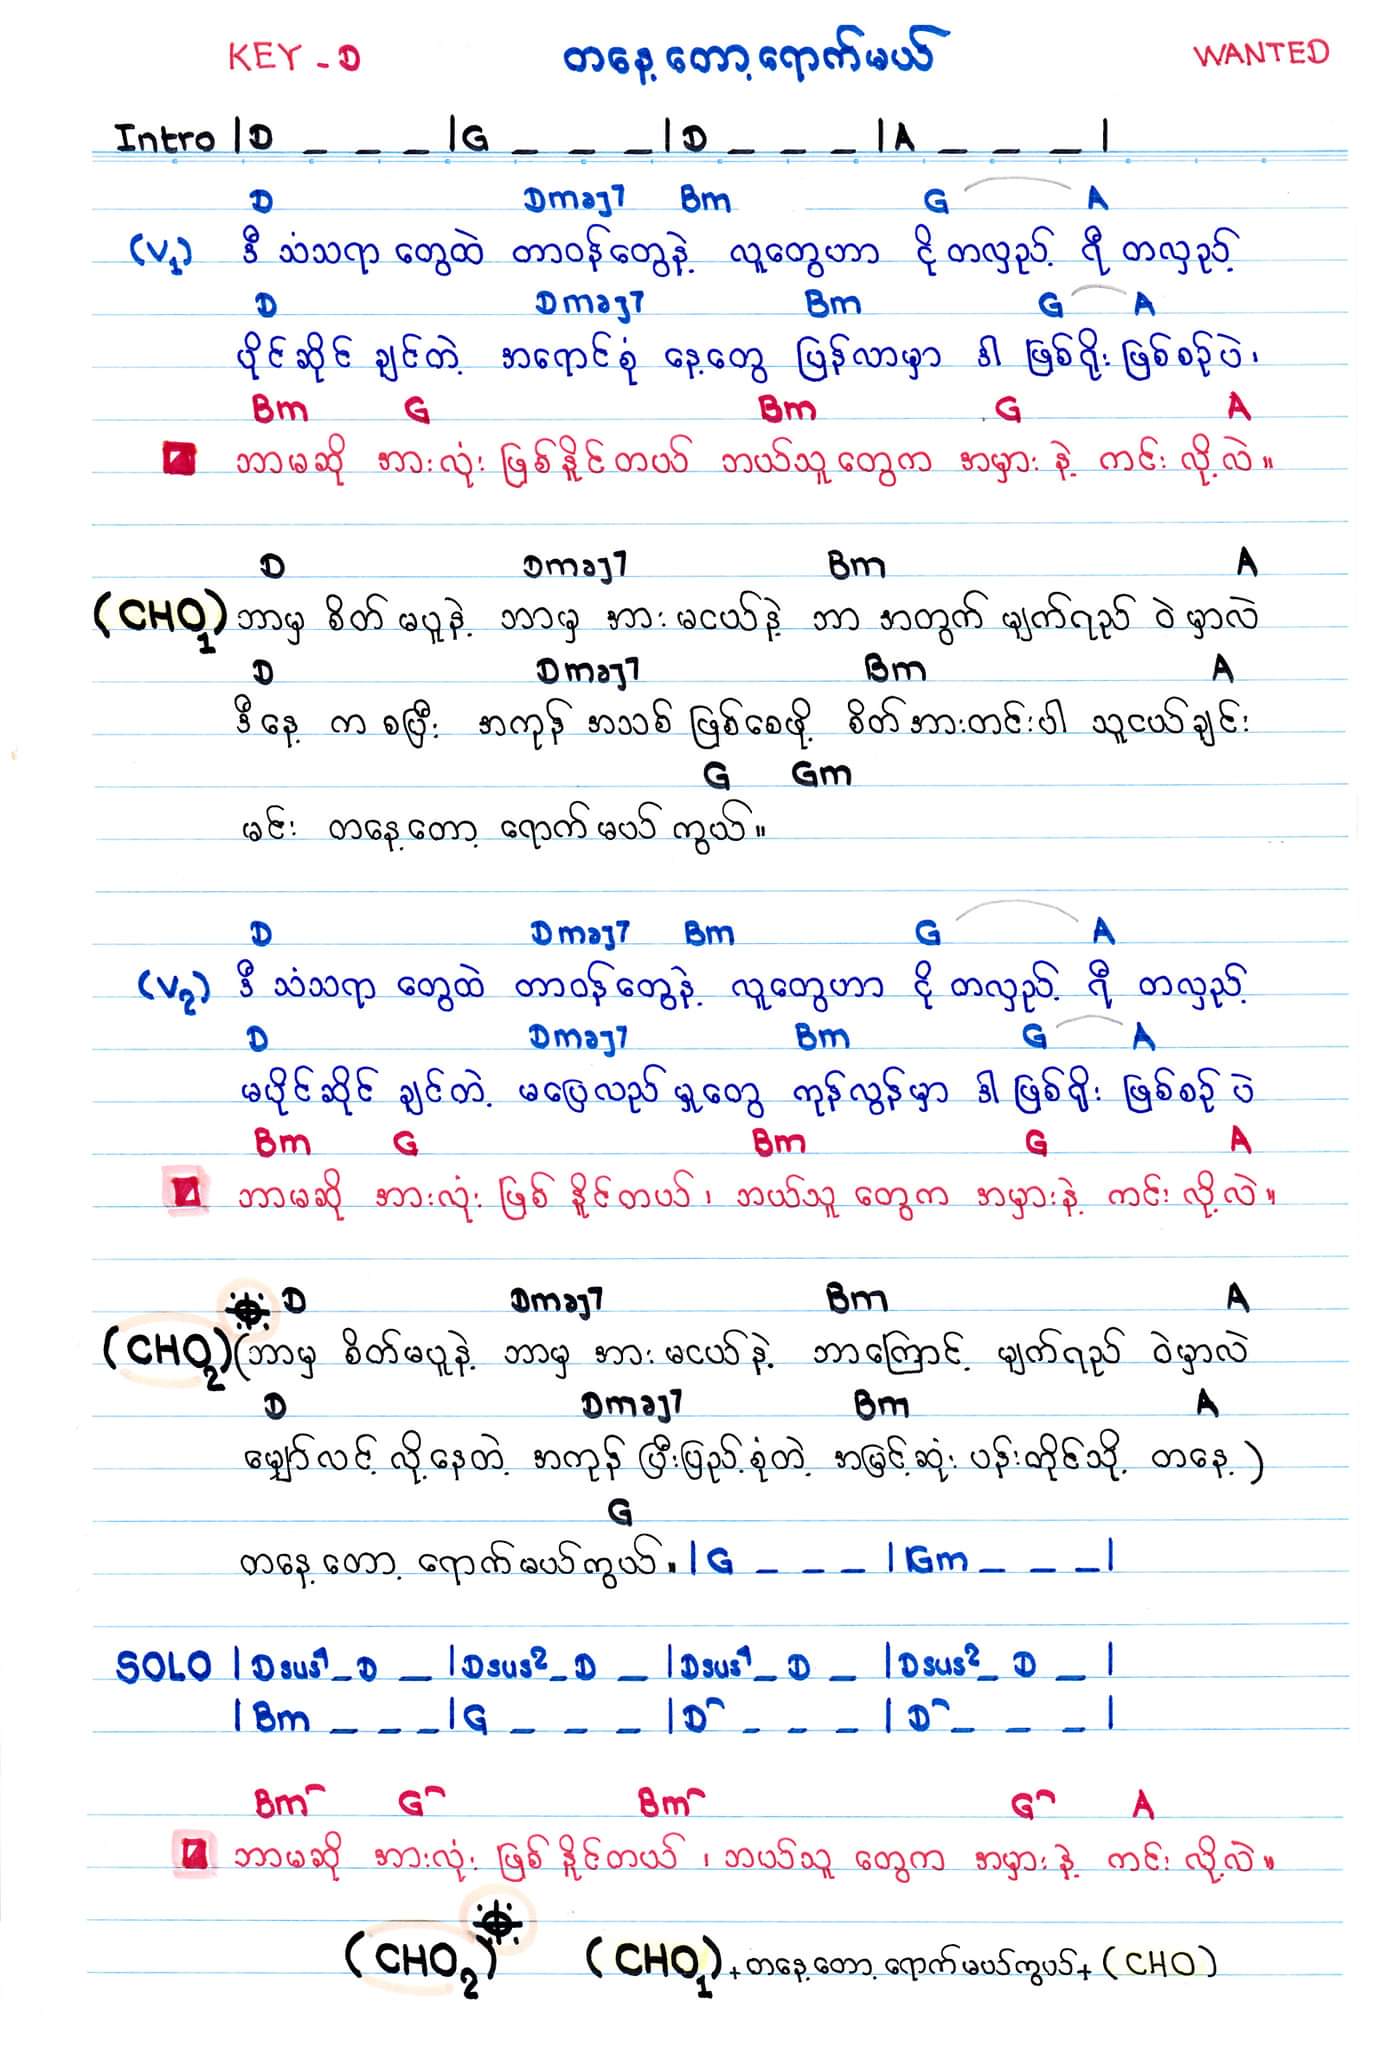 KEY - D တနေ့တော့ရောက်မယ် WANTED
Intro |D _ _ _ |G _ _ _ |D _ _ _ |A _ _ _ |
D Dmaj7 Bm G A
(V1) ဒီ သံသရာ တွေထဲ တာဝန်တွေနဲ့ လူတွေဟာ ငို တလှည့် ရီ တလှည့်
D Dmaj7 Bm G A
ပိုင်ဆိုင် ချင်တဲ့ အရောင်စုံ နေ့တွေ ပြန်လာမှာ ဒါ ဖြစ်ရိုး ဖြစ်စဉ်ပဲ၊
Bm G Bm G A
ဘာမဆို အားလုံး ဖြစ်နိူင်တယ် ဘယ်သူတွေက အမှား နဲ့ ကင်း လို့လဲ။
D Dmaj7 Bm A
(CHO1) ဘာမှ စိတ် မပူနဲ့ ဘာမှ အား မငယ်နဲ့ ဘာ အတွက် မျက်ရည် ဝဲ မှာလဲ
D Dmaj7 Bm A
ဒီနေ့ က စပြီး အကုန် အသစ် ဖြစ်စေဖို့ စိတ်အားတင်းပါ သူငယ်ချင်း
G Gm
မင်း တနေ့တော့ ရောက်မယ် ကွယ်။
D Dmaj7 Bm G A
(V2) ဒီ သံသရာ တွေထဲ တာဝန်တွေနဲ့ လူတွေဟာ ငို တလှည့် ရီ တလှည့်
D Dmaj7 Bm G A
မပိုင်ဆိုင် ချင်တဲ့ မပြေလည် မှုတွေ ကုန်လွန်မှာ ဒါ ဖြစ်ရိုး ဖြစ်စဉ် ပဲ
Bm G Bm G A
ဘာမဆို အားလုံး ဖြစ် နိူင်တယ်၊ ဘယ်သူ တွေက အမှားနဲ့ ကင်း လို့လဲ။
D Dmaj7 Bm A
(CHO2) (ဘာမှ စိတ်မပူနဲ့ ဘာမှ အား မငယ်နဲ့ ဘာကြောင့် မျက်ရည် ဝဲမှာလဲ
D Dmaj7 Bm A
မျှော်လင့် လို့နေတဲ့ အကုန် ပြီးပြည့်စုံတဲ့ အမြင့်ဆုံး ပန်းတိုင်သို့ တနေ့)
G
တနေ့တော့ ရောက်မယ်ကွယ်။ |G _ _ _ |Gm _ _ _|
SOLO |Dsus4_D _ |Dsus2_D _ |Dsus4_D _ |Dsus2_D _ |
|Bm _ _ _|G _ _ _ |D^ _ _ _ |D^ _ _ _ |
Bm^ G^ Bm^ G^ A
ဘာမဆို အားလုံး ဖြစ် နိူင်တယ်၊ ဘယ်သူ တွေက အမှား နဲ့ ကင်း လို့လဲ။
(CHO2) (CHO1) + တနေ့တော့ ရောက်မယ်ကွယ် + (CHO)